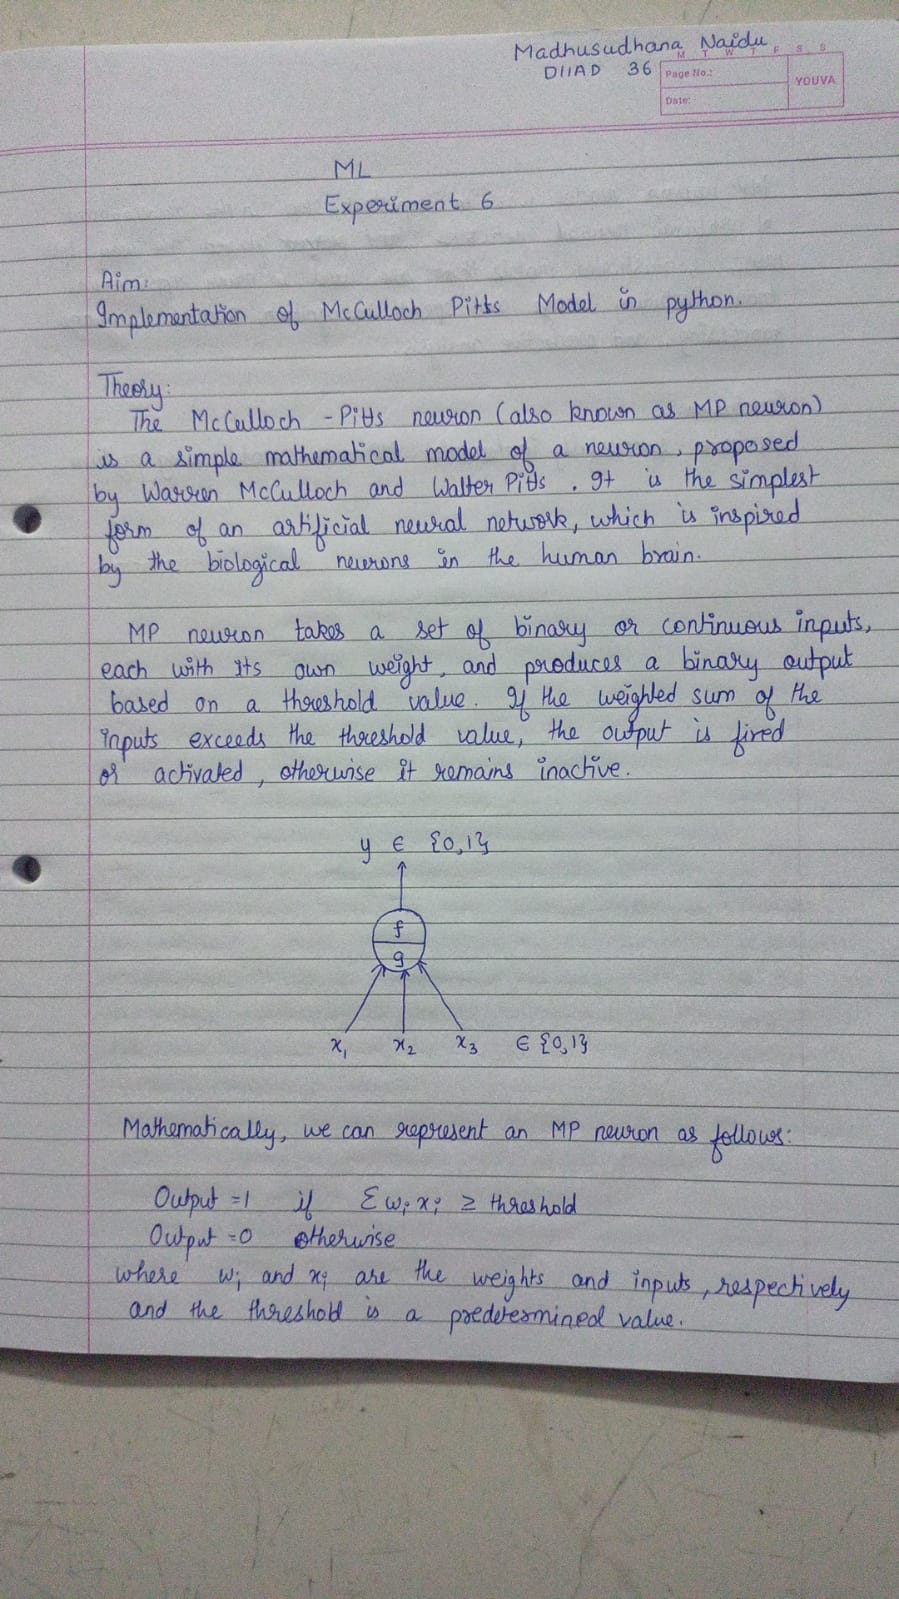 Madhusudhana Naidu
D11AD 36
M T W T F S S
Page No.:
YOUVA
Date:
ML
Experiment 6
Aim:
Implementation of McCulloch Pitts Model in python.
Theory:
The McCulloch - Pitts neuron (also known as MP neuron)
is a simple mathematical model of a neuron, proposed
by Warren McCulloch and Walter Pitts. It is the simplest
form of an artificial neural network, which is inspired
by the biological neurons in the human brain.
MP neuron takes a set of binary or continuous inputs,
each with its own weight, and produces a binary output
based on a threshold value. If the weighted sum of the
inputs exceeds the threshold value, the output is fired
or activated, otherwise it remains inactive.
y ∈ {0,1}
f
g
x₁ x₂ x₃ ∈ {0,1}
Mathematically, we can represent an MP neuron as follows:
Output =1 if Σ wᵢ xᵢ ≥ threshold
Output =0 otherwise
where wᵢ and xᵢ are the weights and inputs, respectively
and the threshold is a predetermined value.